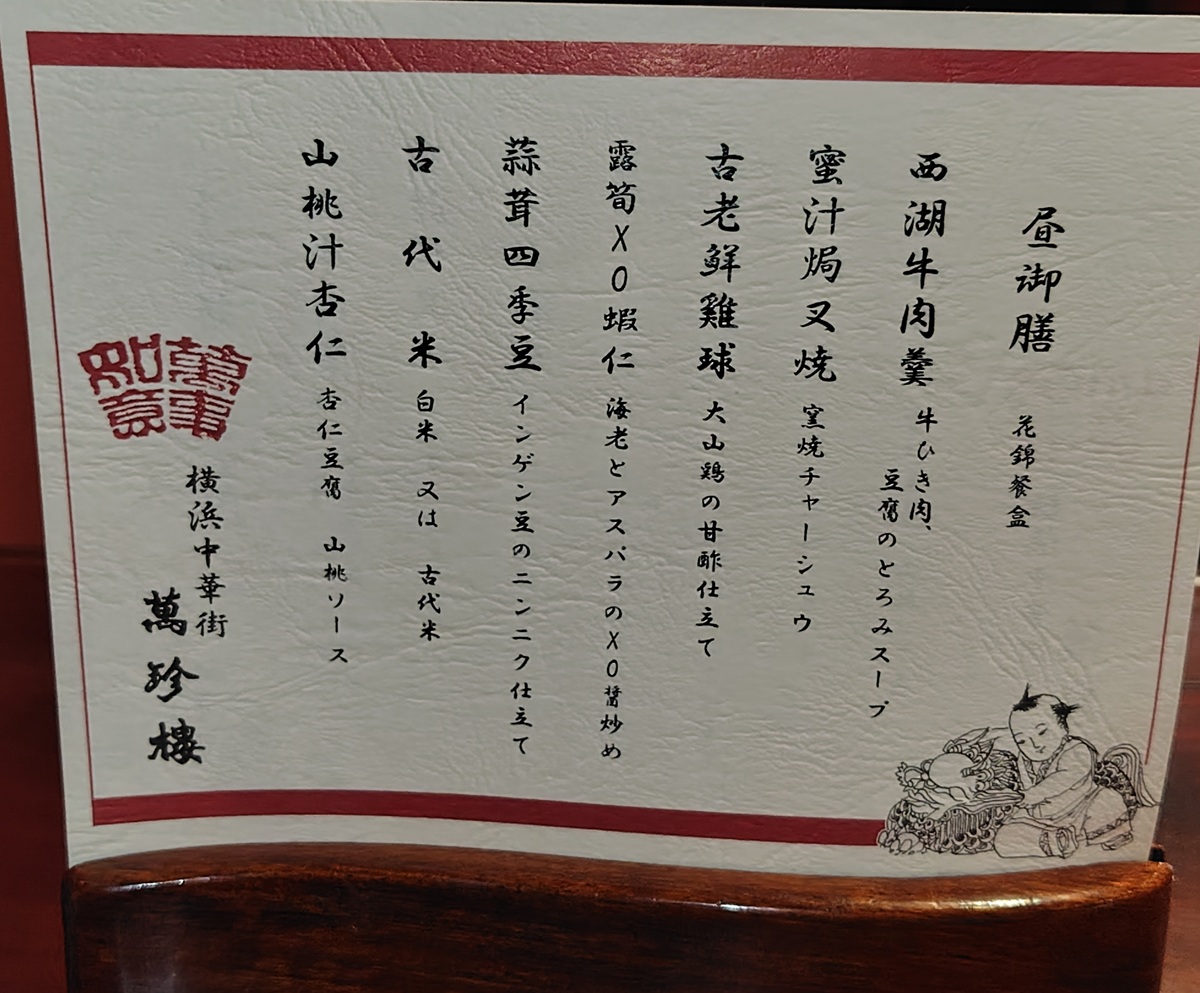 昼御膳 花錦餐盒
西湖牛肉羹 牛ひき肉、
豆腐のとろみスープ
蜜汁焗叉焼 窯焼チャーシュウ
古老鮮雞球 大山鶏の甘酢仕立て
露筍XO蝦仁 海老とアスパラのXO醤炒め
蒜茸四季豆 インゲン豆のニンニク仕立て
古代米 白米 又は 古代米
山桃汁杏仁 杏仁豆腐 山桃ソース
萬事
如意
横浜中華街
萬珍樓